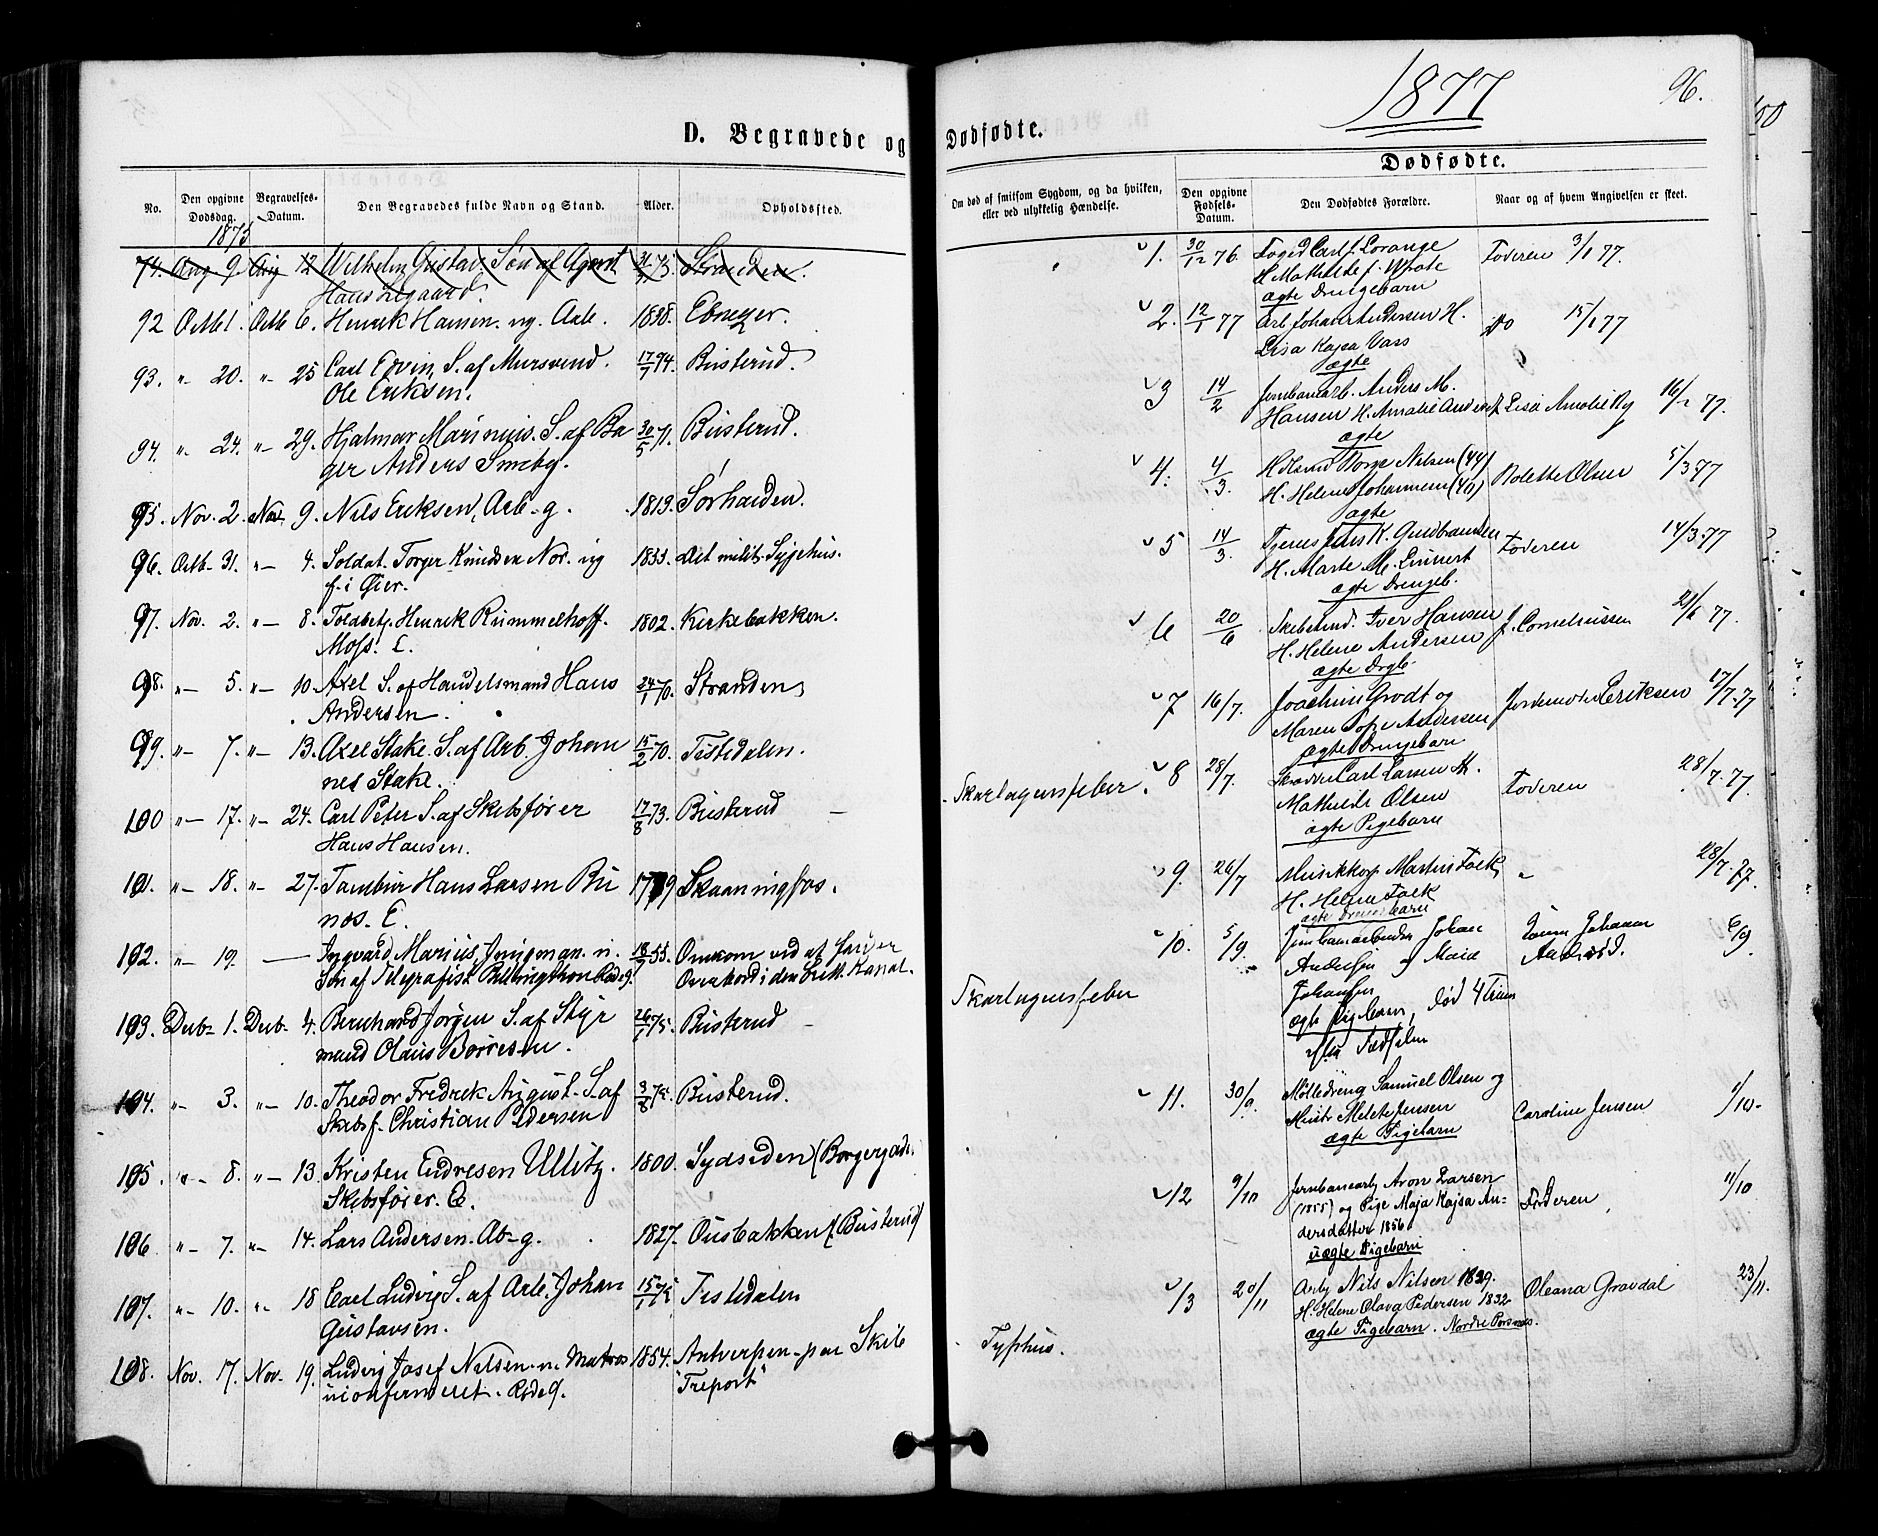 1877
96.
D. Begravede og Dødfødte.
Dødfødte.
No.
Den opgivne Dødsdag.
Begravelses-Datum.
Den Begravedes fulde Navn og Stand.
Alder.
Opholdssted.
Om død af smitsom Sygdom, og da hvilken, eller ved ulykkelig Hændelse.
Den opgivne Fødsels-Datum.
Den Dødfødtes Forældre.
Naar og af hvem Angivelsen er skeet.
1875
74. Aug 9. Aug 12 Wilhelm Gustav. Søn af Agent 75. Stranden.
Hans
92 Octb 1. Octb 6. Henrik Hansen. ug. Arb. 1838. Ebnezer.
93. " 20. " 25 Carl Edvin, S. af Mursvend 17/7 74. Busterud.
Ole Eriksen.
94. " 24. " 29. Hjalmar Marinius. S. af Ba 30/5 71. Busterud.
ger Anders Smeby.
95. Nov. 2. Nov. 9. Nils Eriksen, Arb. g. 1819. Sørhaaden.
96. Octb. 31. " 4. Soldat. Torger Knudsen Nor. ug 1853. Det milit. Sygehus.
f. i Øier.
97. Nov. 2. " 8. Toldbetj. Henrik Rummelhoff. 1802. Kirkebakken.
Moss. E.
98. " 5. " 10. Axel S. af Handelsmand Hans 24/1 70. Stranden
Andersen.
99. " 7. " 13. Axel Stake. S. af Arb. Johan 15/2 70. Tistedalen.
nes Stake.
100 " 17. " 24. Carl Peter S. af Skibsfører 17/8 73. Busterud
Hans Hansen.
101. " 18. " 27. Tambur Hans Larsen Bu Skaaningfos.
nos. E.
102. " 19. — Ingvard Marius, Jungman. u. 18/7 55. Omkom ved at falder
Søn af Telegrafist Overbord i den Kanal.
103. Decb 1. Decb 4. Bernhard Jørgen S. af Styr 26/7 75. Busterud
mand Olaus Børresen.
104. " 3. " 10. Theodor Fredrik August. S. af Busterud.
Skibsf. Christian Pedersen
105. " 8. " 13. Kristen Endresen Ullitz. 1800. Sydsiden (Borgergade.
Skibsfører. E.
106 " 7. " 14. Lars Andersen. Ab g. 1827. Ousbakken (Busterud)
107. " 10. " 18 Carl Ludvig S. af Arb. Johan Tistedalen
Gustavsen.
108. Nov. 17. Nov. 19. Ludvig Josef Nilsen u. Matros 1854. Antverpen paa Skib
uconfermeret. "Treport"
Skarlagensfeber.
Skarlagensfeber
Typhus.
1. 30/12 76. Foged Carl f. Lorange Faderen 3/1 77.
H. Mathilde f.
ægte Drengebarn
2. 12/1 77 Arb. Johan Andersen H. do 15/1 77
Lisa Kajsa Vass
ægte
3 14/2 Jernbanearb. Anders M. 16/2 77.
Hansen H. Amalie Lisa Amalie
ægte
4. 4/3. Børge Nilsen (44) Bolette Olsen 5/3 77
H. Helene Johannesen (40)
ægte
5 14/3. Jens K. Gudbrandsen Faderen 14/3 77
H. Marte M. Linnert
ægte Drengeb.
6 20/6 Iver Hansen J. Corneliussen 21/6 77.
H. Helene Andersen
ægte Drgb.
7 16/7. Joachim Grodt og Jordemoder Eriksen 17/7. 77
Maren Sofie Andersen
ægte Drengebarn
8 28/7. Carl Larsen H. Faderen 28/7. 77
Mathilde Olsen
ægte Pigebarn
9. 26/7 Musikkorp. Martin Falk " 28/7. 77.
H. Helene Falk
ægte Drengebarn
10. 5/9. Jernbanearbeider Johan Johanne 6/9
Andersen og Maria
Johansen
ægte Pigebarn, død 4 Timer
efter Fødselen
11. 30/9. Mølledreng Samuel Olsen og Caroline Jensen 1/10.
Hustr. Melete Jensen
ægte Pigebarn
12 9/10 Jernbanearb. Aron Larsen Faderen 11/10
(1855) og Pige Maja Kajsa An-
dersdatter 1856
uægte Pigebarn
13 20/11 Arb. Nils Nilsen 1829. Oleana Gravdal 23/11.
H. Helene Olava Pedersen 1832
ægte Pigebarn. Nordre